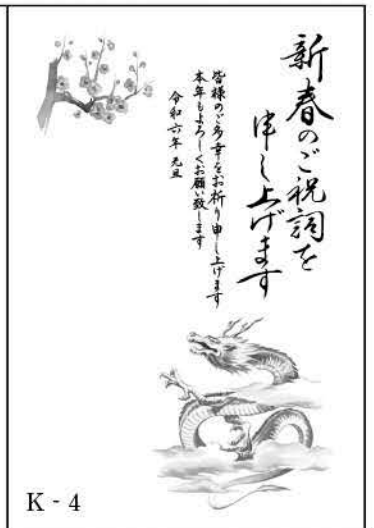 新春のご祝詞を
申し上げます
皆様のご多幸をお祈り申し上げます
本年もよろしくお願い致します
令和六年 元旦
K - 4